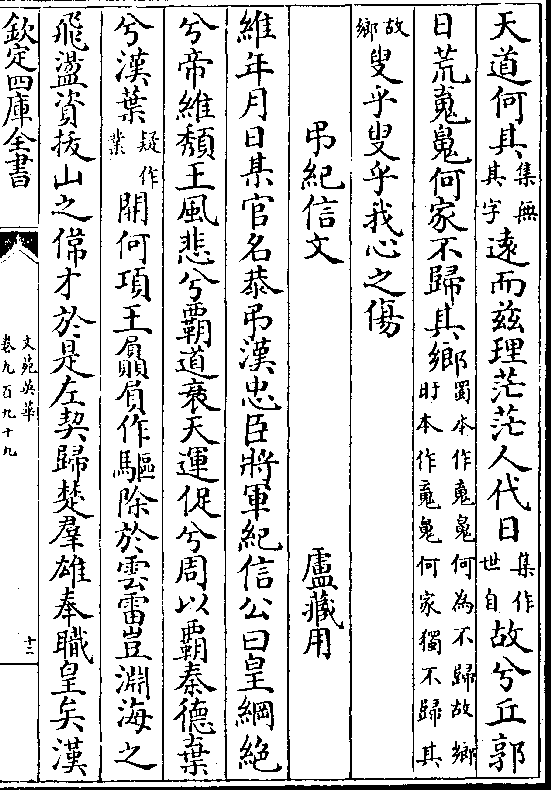 天道何其集無其字遠而兹理茫茫人代日集作世自故兮丘郭
日荒蒐㲋何家不歸其鄉蜀本作蒐㲋何為不歸故鄉盱本作蒐㲋何家獨不歸其
故鄉叟乎叟乎我心之傷
弔紀信文 盧藏用
維年月日某官名恭弔漢忠臣將軍紀信公曰皇綱絶
兮帝維頽王風悲兮覇道衰天運促兮周以覇秦德棄
兮漢葉疑作業開何項王贔屓作驅除於雲雷豈淵海之
飛盪資拔山之偉才於是左契歸楚羣雄奉職皇矣漢
欽定四庫全書
文苑英華
卷九百九十九
十二